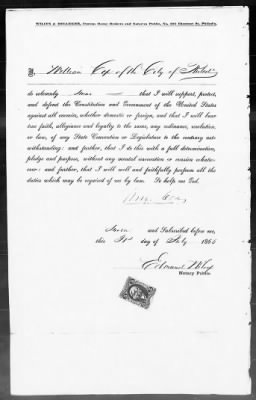 I, William Cox of the City of Philada
do solemnly Swear that I will support, protect,
and defend the Constitution and Government of the United States
against all enemies, whether domestic or foreign, and that I will bear
true faith, allegiance and loyalty to the same, any ordinance, resolution,
or law, of any State Convention or Legislature to the contrary not-
withstanding: and further, that I do this with a full determination,
pledge and purpose, without any mental reservation or evasion whatso-
ever: and further, that I will well and faithfully perform all the
duties which may be required of me by law. So help me God.
Wm. Cox
Sworn and Subscribed before me,
this day of July 1865
Notary Public.